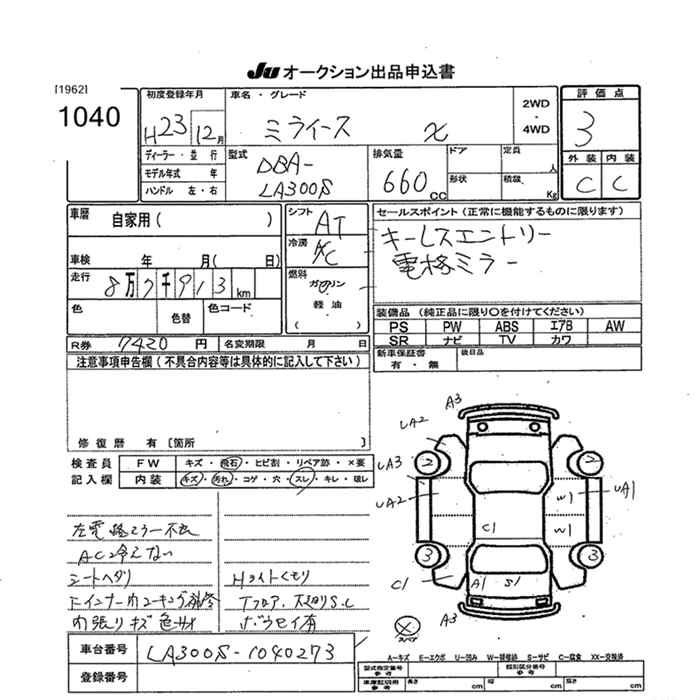 Ju オークション出品申込書
[1962]
1040
初度登録年月
H23 12月
車名・グレード
ミライース X
2WD
・
4WD
評価点
3
外装 内装
C C
ディーラー・並行
モデル年式 年
ハンドル 左・右
型式
DBA-
LA300S
排気量
660 cc
ドア
定員
人
形状
積載
Kg
車歴 自家用( )
車検 年 月( 日)
走行 8万7千913 km
色 色替 色コード
シフト AT
冷房 A/C
燃料 ガソリン
軽油
( )
セールスポイント(正常に機能するものに限ります)
キーレスエントリー
電格ミラー
装備品(純正品に限り○を付けてください)
PS PW ABS エアB AW
SR ナビ TV カワ
新車保証書 後日品
有・無
R券 7420 円 名変期限 月 日
注意事項申告欄(不具合内容等は具体的に記入して下さい)
修復暦 有〔箇所 〕
検査員 FW キズ・飛石・ヒビ割・リペア跡・×要
記入欄 内装 キズ・汚れ・コゲ・穴・スレ・キレ・破レ
左電格ミラー不良
AC冷えない
シートヘタリ
内張りキズ 色
Hライトくもり
Tフロア、
ボウセイ有
A3
UA2
UA3
2
2
UA2
W1
UA1
C1
W1
3
3
C1
A1
S1
A3
スペア
A=キズ E=エクボ U=凹み W=補修済 S=サビ C=腐食 XX=交換済
車台番号 LA300S-1040273
登録番号
型式指定番号
参考
類別区分番号
参考
車庫証明用
参考
長さ cm 幅 cm 高さ cm